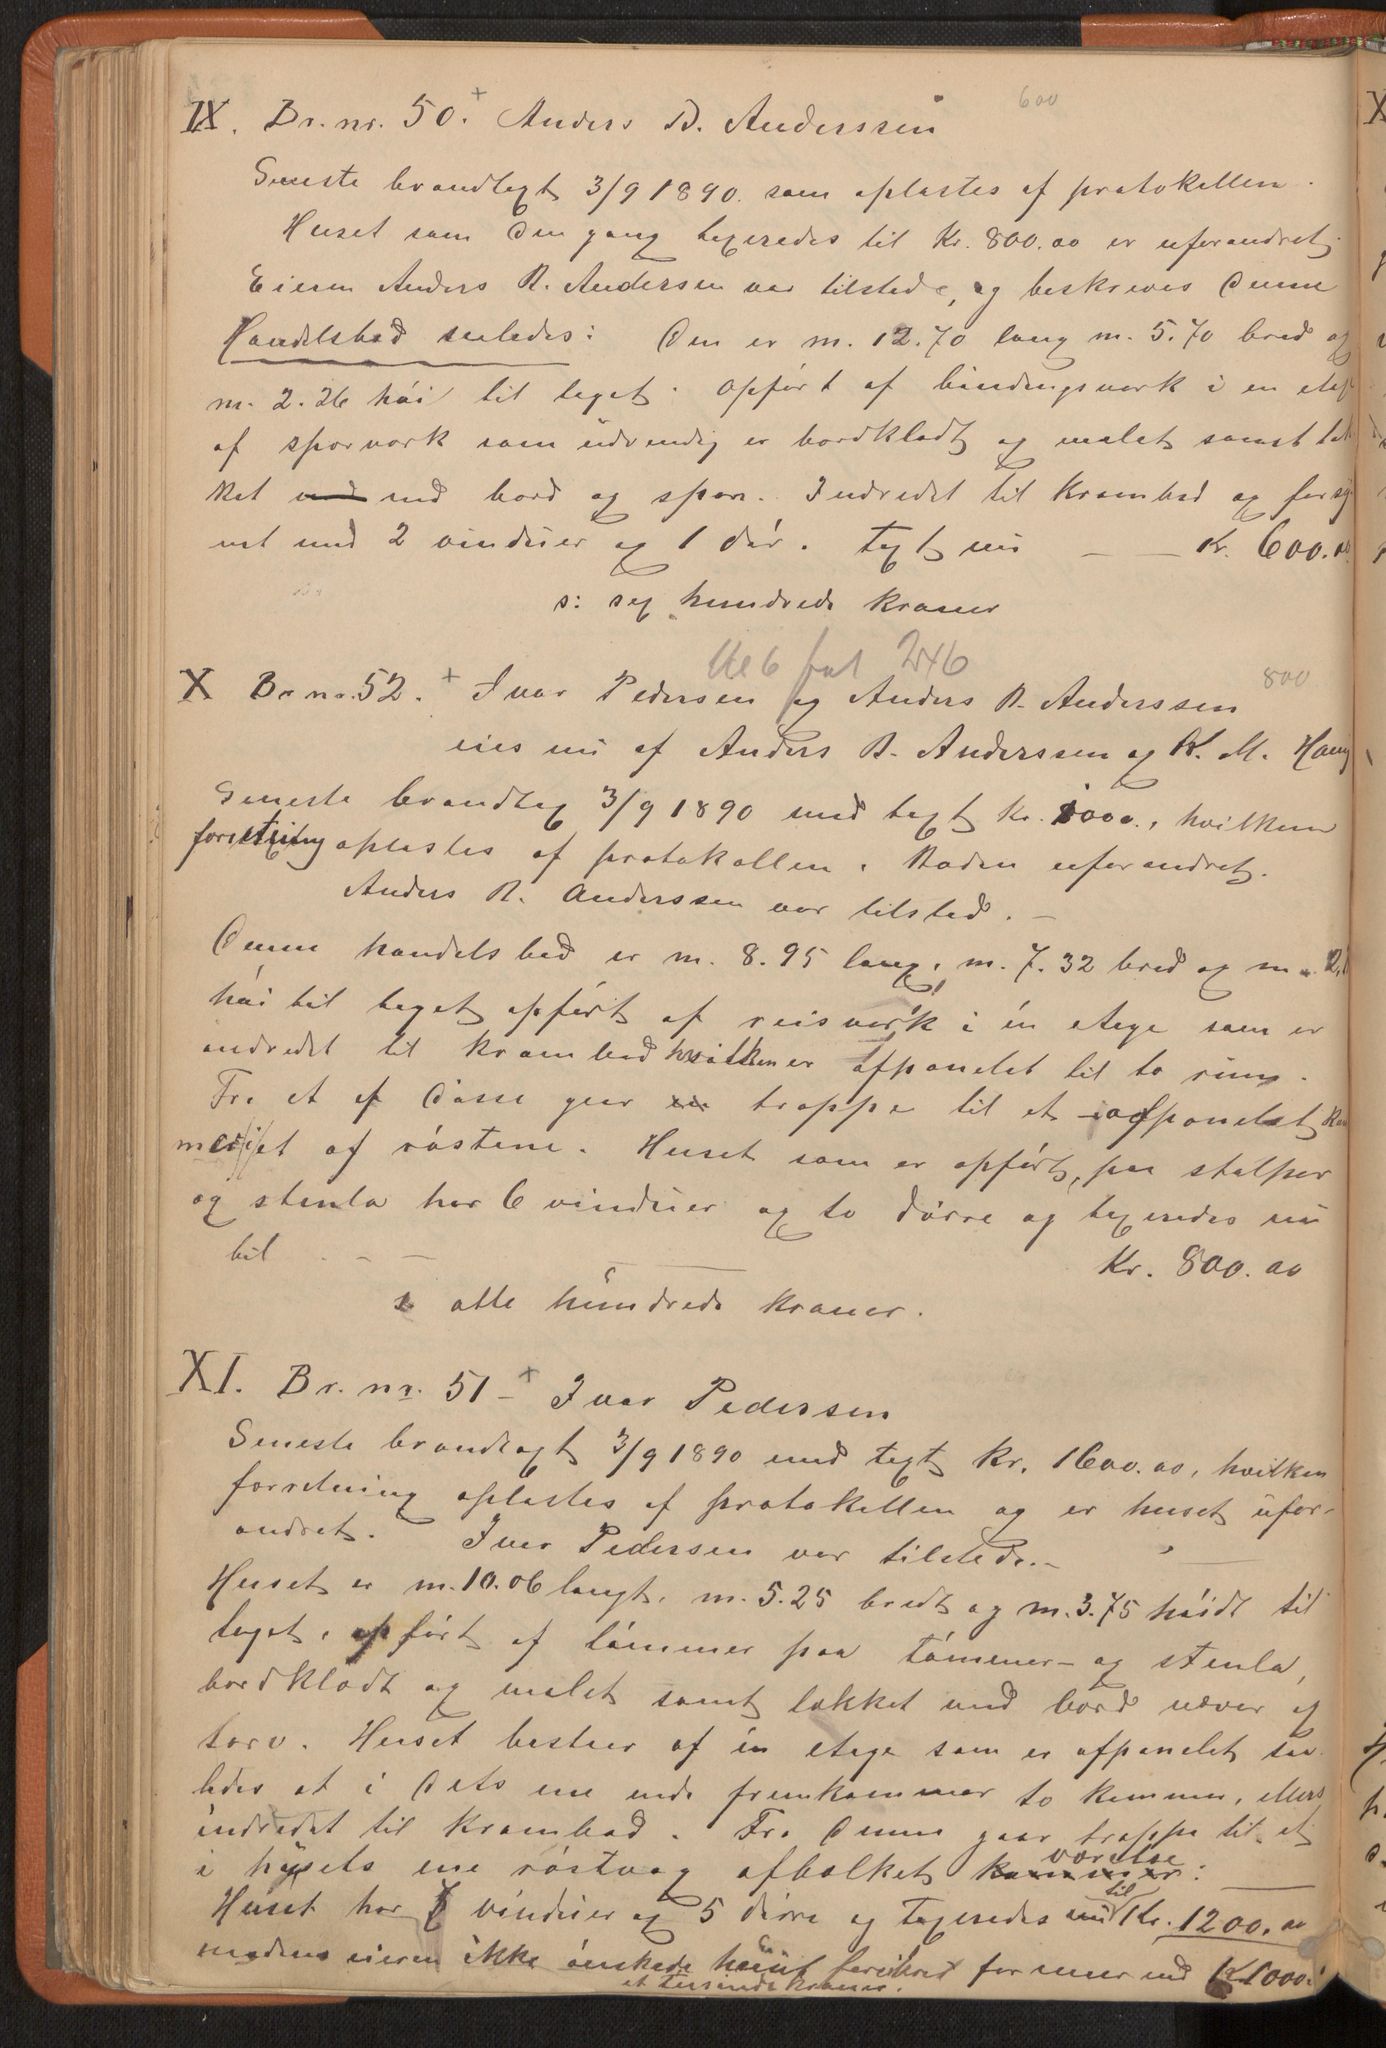 IX. Br. nr. 50. + Anders B. Anderssen 600
Seneste brandtaxt 3/9 1890. som oplæstes af protokollen.
Huset som den gang taxeredes til Kr. 800.00 er uforandret.
Eieren Anders B. Andersen var tilstede, og beskreves denne
Handelsbod saaledes: Den er m. 12.70 lang m. 5.70 bred og
m. 2.26 høi til taget. Opført af bindingsværk i en etag
af sporværk som udvendig er bordklædt og malet samt tæk
ket med bord og spon. Indredet til Krambod og forsy
net med 2 vinduer og 1 dør. Taxt nu — — Kr. 600.00
s: sex hundrede kroner
fol 246
X Br. nr. 52. + Ivar Pedersen og Anders B. Anderssen 800
eies nu af Anders B. Anderssen og K. M. Haug
Seneste brandtax 3/9 1890 med taxt Kr. 1000., hvilken
forretning oplæstes af protokollen. Boden uforandret.
Anders B. Anderssen var tilstede. —
Denne handelsbod er m. 8.95 lang, m. 7.32 bred og m. 2.
høi til taget opført af reisværk i én etage som er
indredet til krambod hvilken er afpanelet til to rum.
Fra et af disse gaar en trappe til et afpanelet
af røstene. Huset som er opført paa stolper
og stenla har 6 vinduer og to dørre og taxeredes nu
til — — Kr. 800.00
s. otte hundrede kroner.
XI. Br. nr. 51 — + Ivar Pedersen
Seneste brandtaxt 3/9 1890 med taxt Kr. 1600.00, hvilken
forretning oplæstes af protokollen og er huset ufor-
andret. Iver Pedersen var tilstede. —
Huset er m. 10.06 langt, m. 5.25 bredt og m. 3.75 høidt til
taget, opført af tømmer paa tømmer- og stenla,
bordklædt og malet samt tækket med bord næver og
torv. Huset bestaar af én etage som er afpanelet saa
ledes at i dets ene ende fremkommer to kammer, ellers
indredet til Krambod. Fra denne gaar trappe til et
i husets ene røstvæg afbalket kammer værelse: —
Huset har 7 vinduer og 5 dørre og taxeredes nu til Kr. 1200.00
medens eieren ikke ønskede huset forsikret for mer end Kr. 1000.
et tusinde kroner.